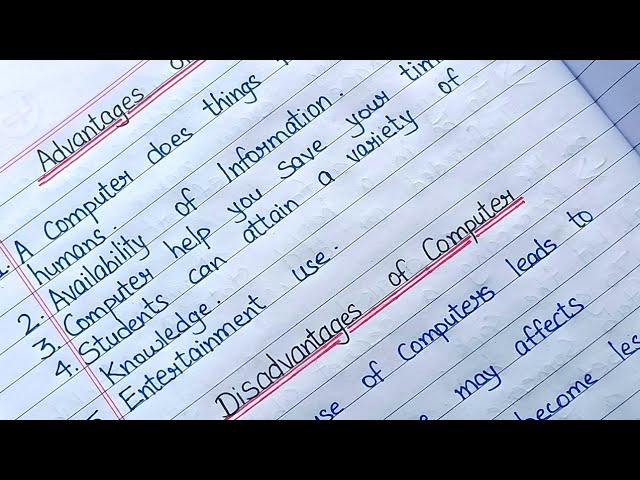 Advantages
1. A Computer does things
humans.
2. Availability of Information.
3. Computer help you save your tim
4. Students can attain a variety of
Knowledge.
Entertainment use.
Disadvantages of Computer
use of Computers leads to
may affects
become les